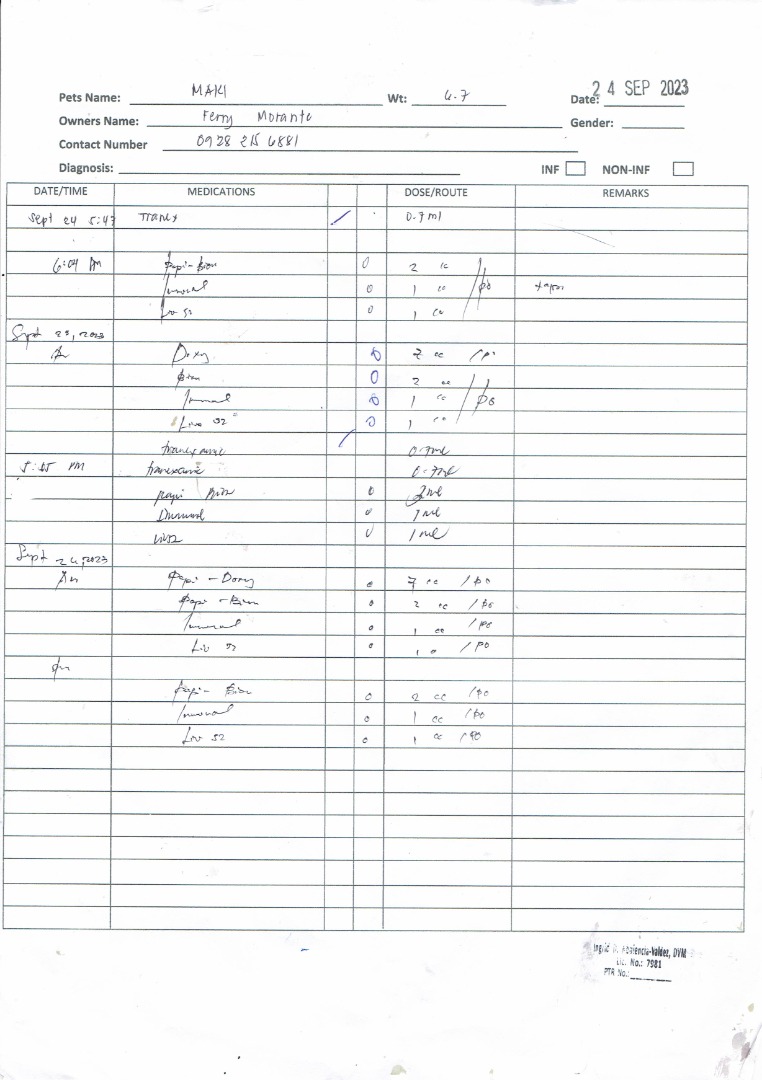 Pets Name: MAKI Wt: 6.7 Date: 24 SEP 2023
Owners Name: Ferry Moranto Gender:
Contact Number 0928 215 6881
Diagnosis: INF NON-INF
DATE/TIME MEDICATIONS DOSE/ROUTE REMARKS
Sept 24 5:47 Tranex 0.7ml
6:04 PM Papi-Bion 0 2 cc
Imunal 0 1 cc /po
Liv 52 0 1 cc
Sept 25, 2023
Doxy 0 7 cc /po
Bion 0 2 cc
0 1 cc /po
Liv 52 0 1 cc
tranexamic 0.7ml
PM tranexamic 0.7ml
papi Bion 0 2ml
0 1ml
0 1ml
Sept 26, 2023
Am Papi-Doxy 0 7 cc /po
Papi-Bion 0 2 cc /po
0 1 cc /po
Liv 52 0 1 /po
pm
Papi-Bion 0 2 cc /po
0 1 cc /po
Liv 52 0 1 cc /po
DVM
Lic. No.: 7981
PTR No.: